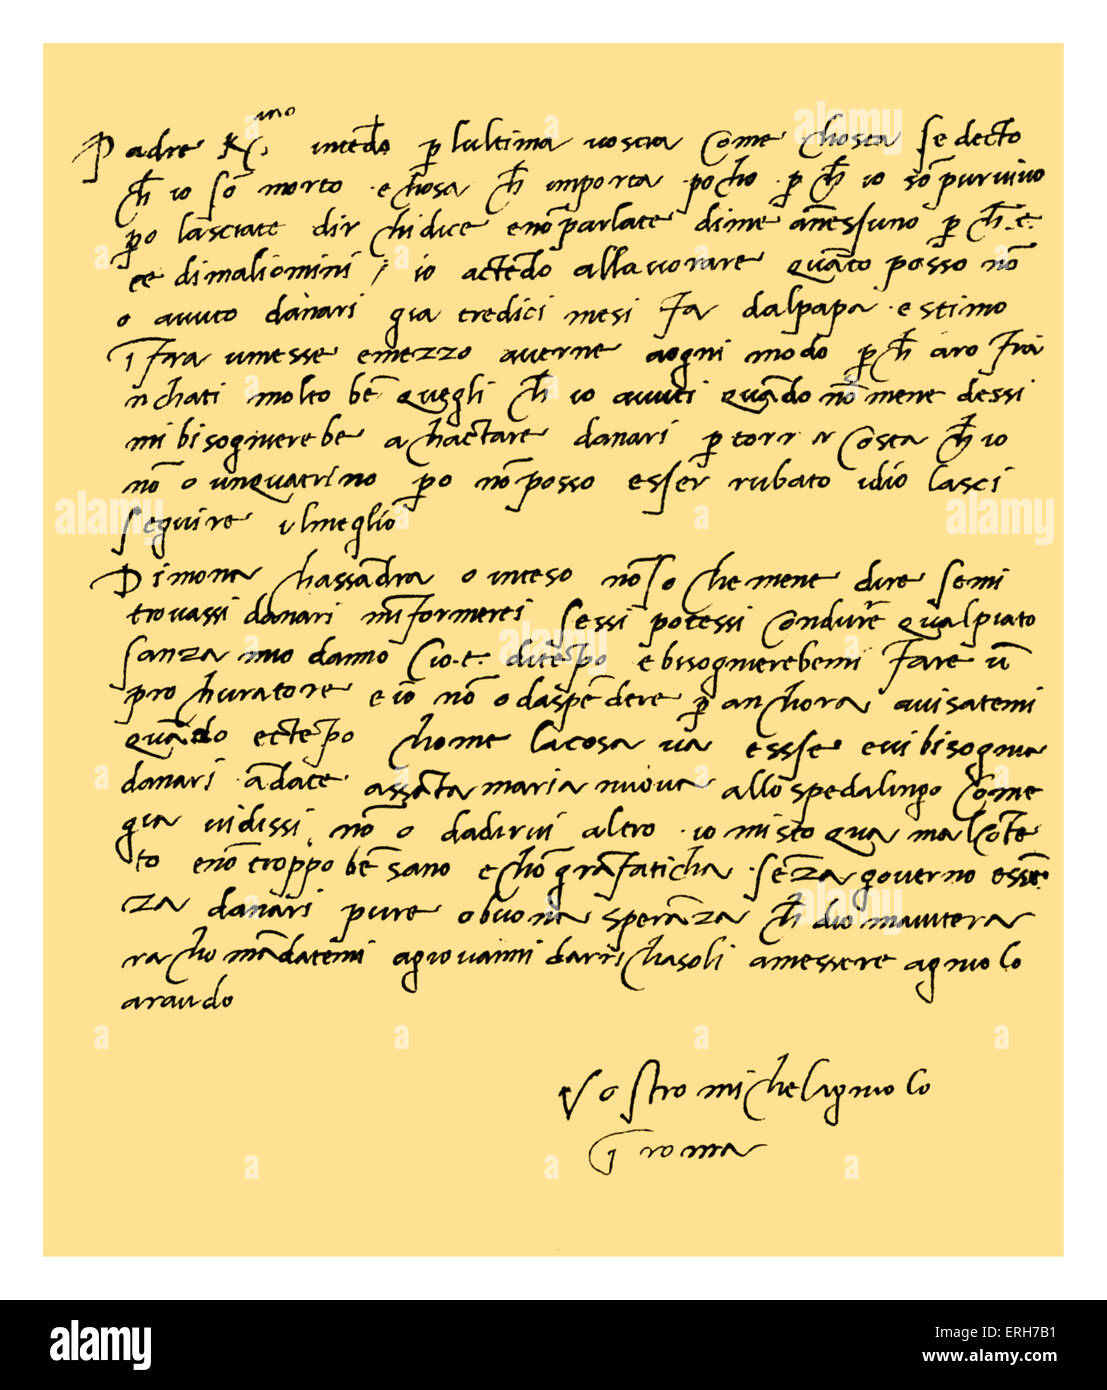 Padre R.imo intēdo p̄ lultima vostra Come chosta se decto
ch̄ io sō morto e chosa ch̄ importa pocho p̄ ch̄ io sō pur vivo
p̄o lasciate dir chi dice e nō parlate di me a nessuno p̄ ch̄ e
ce di mali omini io actēdo allavorare quāto posso nō
o avuto danari gia tredici mesi fa dal papa e stimo
ī fra u mese e mezzo averne a ogni modo p̄ ch̄ aro frā
nchati molto bē quegli ch̄ io avuti quādo nō me ne dessi
mi bisognierebe achactare danari p̄ torr Costa ch̄ io
nō o un quatrino p̄o nō posso esser rubato idio lasci
seguire il meglio
Di mona chassādra o inteso nō so che me ne dire se mi
trovassi danari m īformerei sessi potessi Condurē qua l piato
sanza mio danno Cio e di tēpo e bisognierebemi fare ū
prochuratore e io nō o da spēdere p̄ anchora avisatemi
quādo e tēpo chome la cosa va e sse vi bisognia
danari ādate a Sāta maria nuova allo spedalingo Come
gia vi dissi nō o da dirvi altro io mi sto qua mal Cōtē
to e nō troppo bē sano e chō grā faticha sēza governo e ssē
za danari pure o buona sperāza ch̄ dio m aiutera
rachomādatemi a giovanni da rrichasoli a messere agniolo
araudo
Vostro michelagniolo
ī roma
alamy
ERH7B1
www.alamy.com